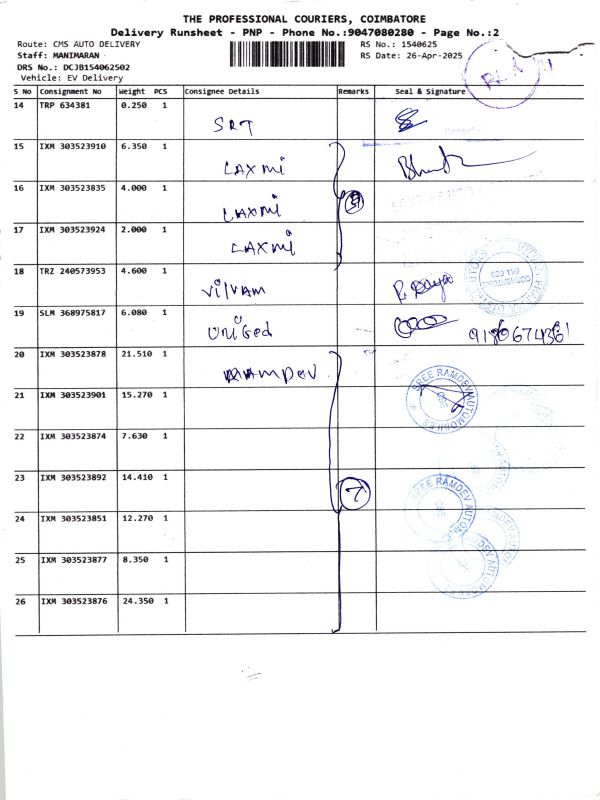 THE PROFESSIONAL COURIERS, COIMBATORE
Delivery Runsheet - PNP - Phone No.:9047080280 - Page No.:2
Route: CMS AUTO DELIVERY RS No.: 1540625
Staff: MANIMARAN RS Date: 26-Apr-2025
DRS No.: DCJB154062502
Vehicle: EV Delivery
S No Consignment No Weight PCS Consignee Details Remarks Seal & Signature
14 TRP 634381 0.250 1
SRT
15 IXM 303523910 6.350 1
LAXMi
16 IXM 303523835 4.000 1
LAXMi
17 IXM 303523924 2.000 1
LAXMi
18 TRZ 240573953 4.600 1
Vilvam
19 SLM 368975817 6.080 1
uniged
20 IXM 303523878 21.510 1
RAMDEV
SREE RAMDEV AUTOMOBILES
21 IXM 303523901 15.270 1
22 IXM 303523874 7.630 1
23 IXM 303523892 14.410 1
7
SREE RAMDEV AUTOM
24 IXM 303523851 12.270 1
25 IXM 303523877 8.350 1
26 IXM 303523876 24.350 1